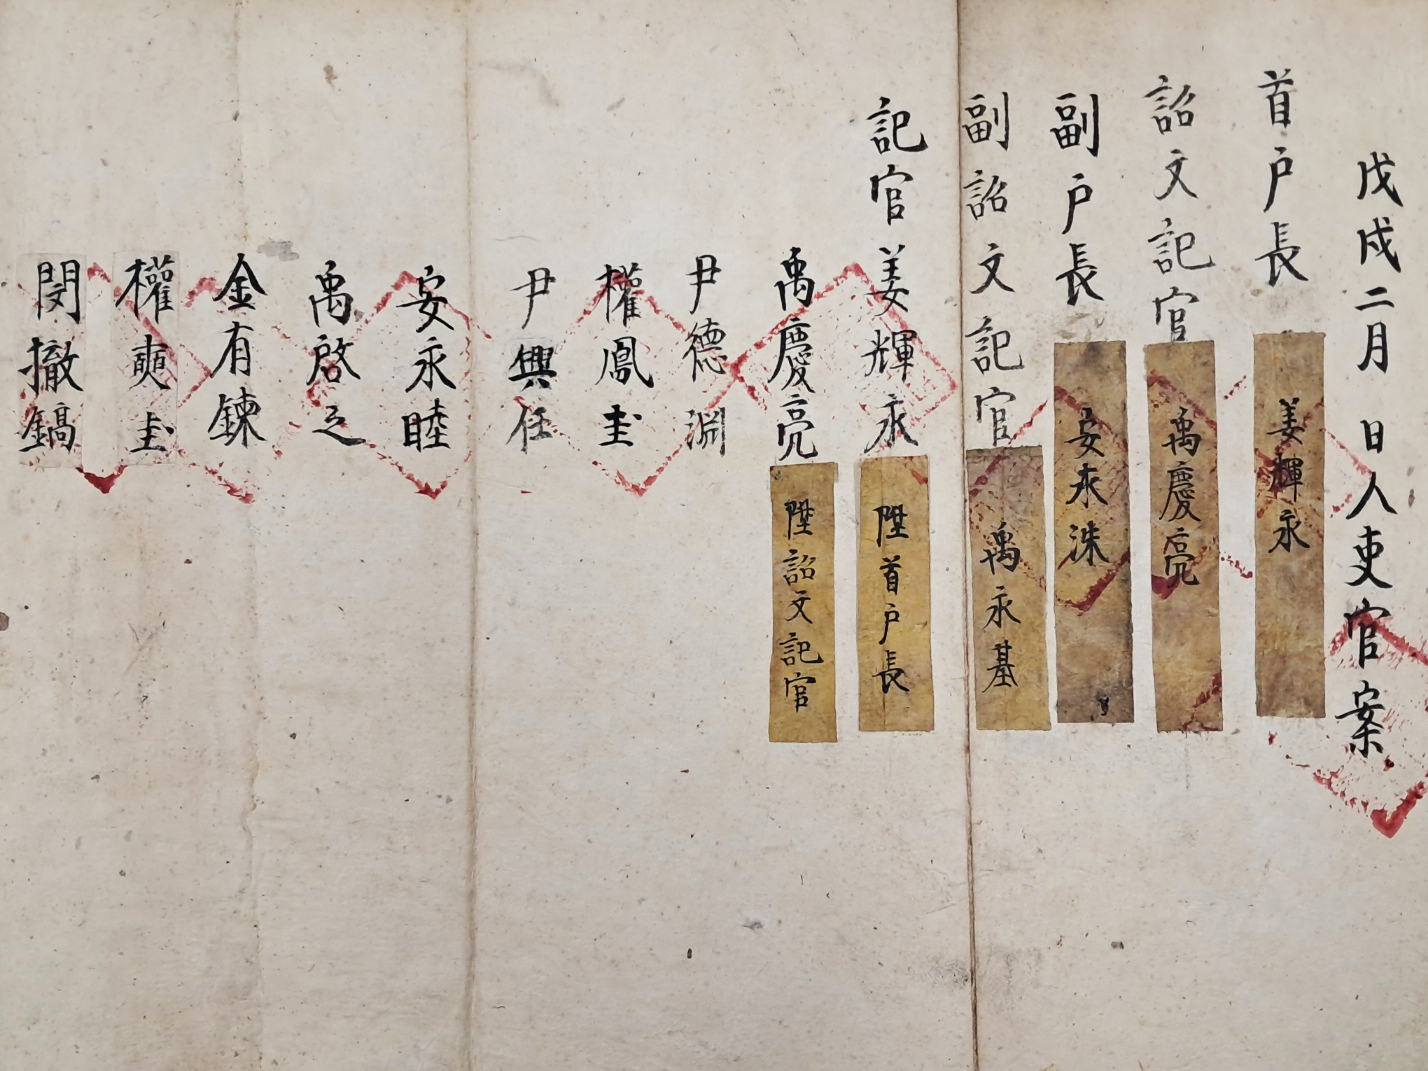 戊戌二月 日人吏官案
首户長 姜輝永
詔文記官 禹慶亮
副户長 安永洙
副詔文記官 禹永基
記官姜輝永 陞首户長
禹慶亮 陞詔文記官
尹德淵
權鳳圭
尹興任
安永睦
禹啓之
金有鍊
權奭圭
閔撤鎬